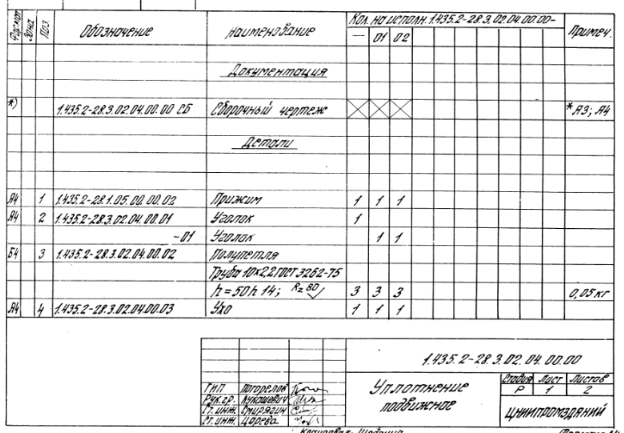 Формат Зона Поз. Обозначение Наименование Кол. на исполн. 1.435.2-28.3.02.04.00.00- Примеч.
— 01 02
Документация
*) 1.435.2-28.3.02.04.00.00 СБ Сборочный чертеж *А3; А4
Детали
А4 1 1.435.2-28.1.05.00.00.02 Прижим 1 1 1
А4 2 1.435.2-28.3.02.04.00.01 Уголок 1
-01 Уголок 1 1
Б4 3 1.435.2-28.3.02.04.00.02 Полупетля
Труба 10×2,2 ГОСТ 3262-75
h=50h14; Rz 80 3 3 3 0,05 кг
А4 4 1.435.2-28.3.02.04.00.03 Ухо 1 1 1
1.435.2-28.3.02.04.00.00
Уплотнение подвижное
Стадия Лист Листов
Р 1 2
ГИП Погорелов
Рук.гр. Лукашевич
Ст. инж. Спирягин
Ст. инж. Царева
ЦНИИпромзданий
Копировал: